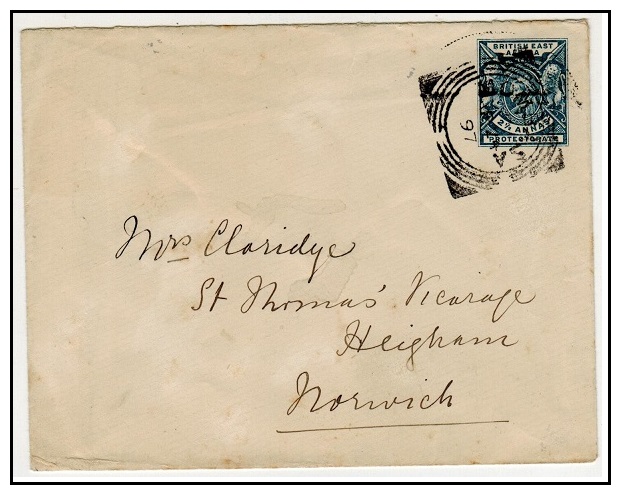 BRITISH EAST
AFRICA
2½ ANNAS
PROTECTORATE
97
Mrs Claridge
St Thomas' Vicarage
Heigham
Norwich